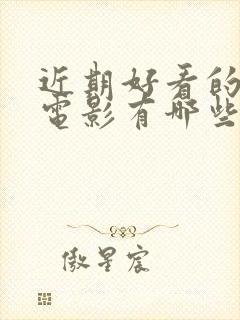 近期好看的
电影有哪些
傲星宸